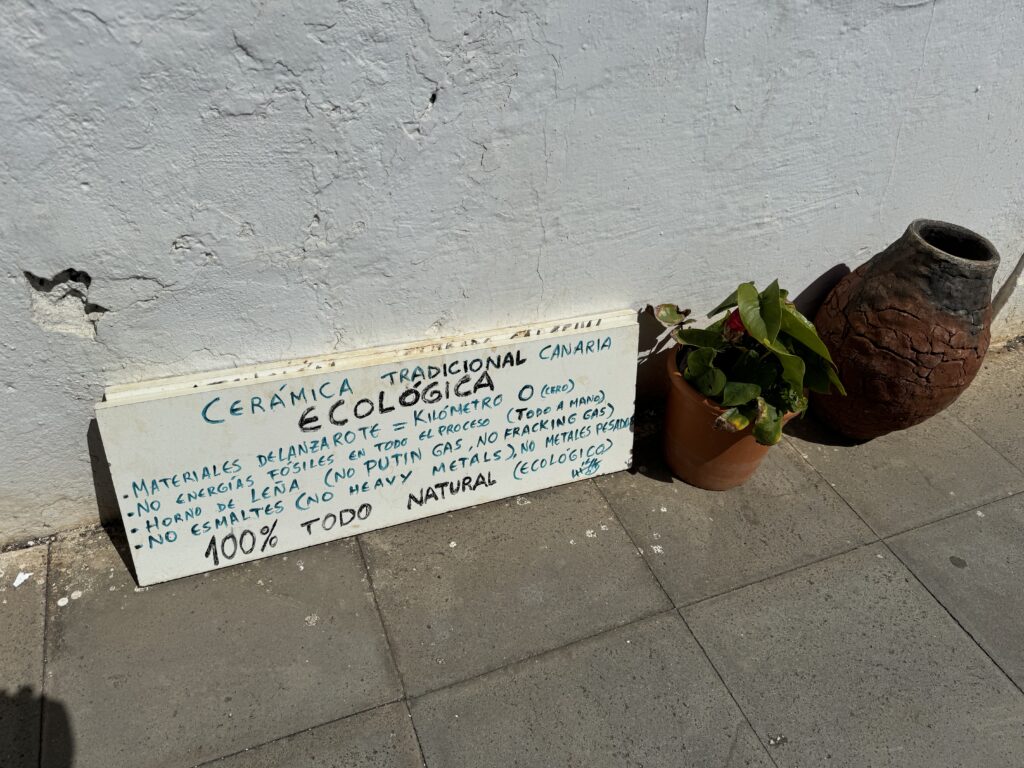 CERÁMICA TRADICIONAL CANARIA
ECOLÓGICA
• MATERIALES DE LANZAROTE = KILÓMETRO O (CERO)
• NO ENERGÍAS FÓSILES EN TODO EL PROCESO (TODO A MANO)
• HORNO DE LEÑA (NO PUTIN GAS, NO FRACKING GAS)
• NO ESMALTES (NO HEAVY METALS), NO METALES PESADOS
(ECOLÓGICO)
100% TODO NATURAL